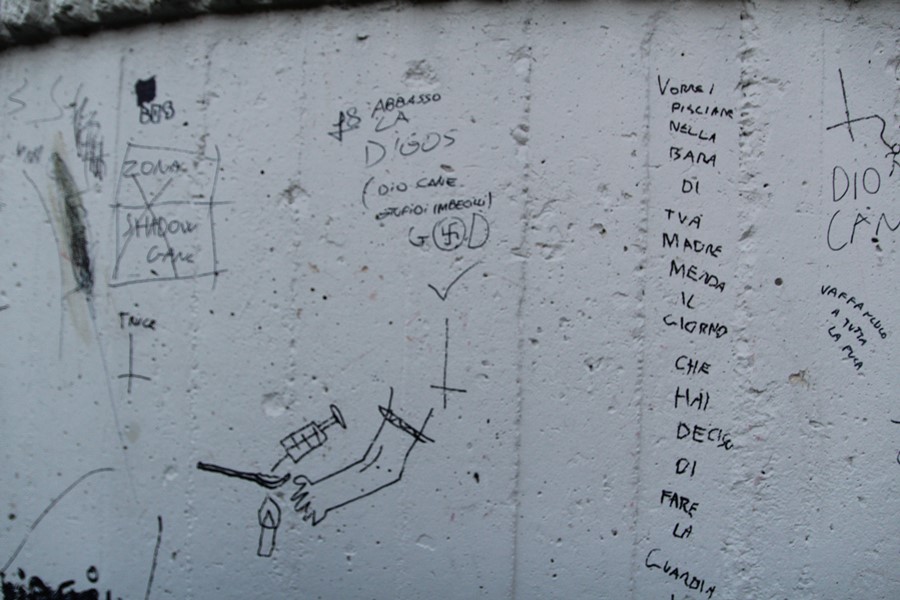 ZONA
SHADOW
GANG
TRUCE
ABBASSO
LA
DIGOS
(DIO CANE
STUPIDI IMBECILLI)
G 卐 D
VORREI
PISCIARE
NELLA
BARA
DI
TUA
MADRE
MERDA
IL
GIORNO
CHE
HAI
DECISO
DI
FARE
LA
GUARDIA
DIO
CAN
VAFFANCULO
A TUTTA
LA PULA